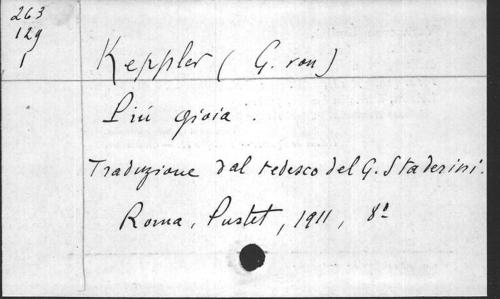 263
129
1
Keppler (G. von)
Più gioia.
Traduzione dal tedesco del G. Staderini.
Roma, Pustet, 1911, 8º